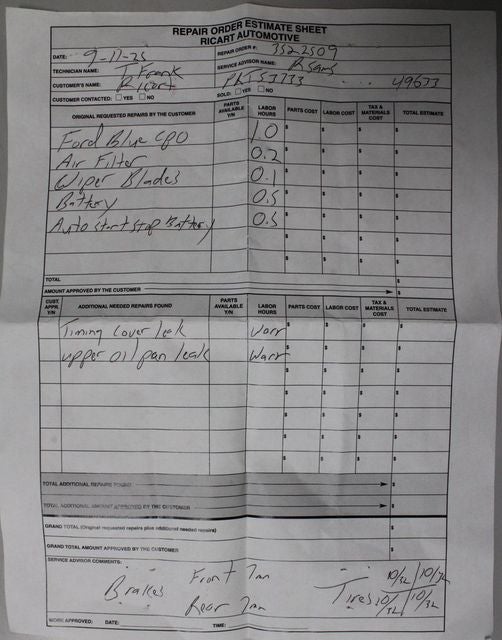 REPAIR ORDER ESTIMATE SHEET
RICART AUTOMOTIVE
DATE: 9-17-25 REPAIR ORDER #: 3522509
TECHNICIAN NAME: T Frank SERVICE ADVISOR NAME: R Sams
CUSTOMER'S NAME: Ricart PRT53733 49633
CUSTOMER CONTACTED: YES NO SOLD: YES NO
ORIGINAL REQUESTED REPAIRS BY THE CUSTOMER PARTS AVAILABLE Y/N LABOR HOURS PARTS COST LABOR COST TAX & MATERIALS COST TOTAL ESTIMATE
Ford Blue CPO 1.0 $ $ $ $
Air Filter 0.2 $ $ $ $
Wiper Blades 0.1 $ $ $ $
Battery 0.5 $ $ $ $
Auto start stop Battery 0.5 $ $ $ $
$ $ $ $
$ $ $ $
TOTAL $
AMOUNT APPROVED BY THE CUSTOMER $
CUST. APPR. Y/N ADDITIONAL NEEDED REPAIRS FOUND PARTS AVAILABLE Y/N LABOR HOURS PARTS COST LABOR COST TAX & MATERIALS COST TOTAL ESTIMATE
Timing cover leak Warr $ $ $ $
upper oil pan leak Warr $ $ $ $
$ $ $ $
$ $ $ $
$ $ $ $
$ $ $ $
$ $ $ $
TOTAL ADDITIONAL REPAIRS FOUND $
TOTAL ADDITIONAL AMOUNT APPROVED BY THE CUSTOMER $
GRAND TOTAL (Original requested repairs plus additional needed repairs) $
GRAND TOTAL AMOUNT APPROVED BY THE CUSTOMER $
SERVICE ADVISOR COMMENTS:
Brakes Front 7mm Tires 10/32 10/32
Rear 7mm 10/32 10/32
WORK APPROVED: DATE: TIME: